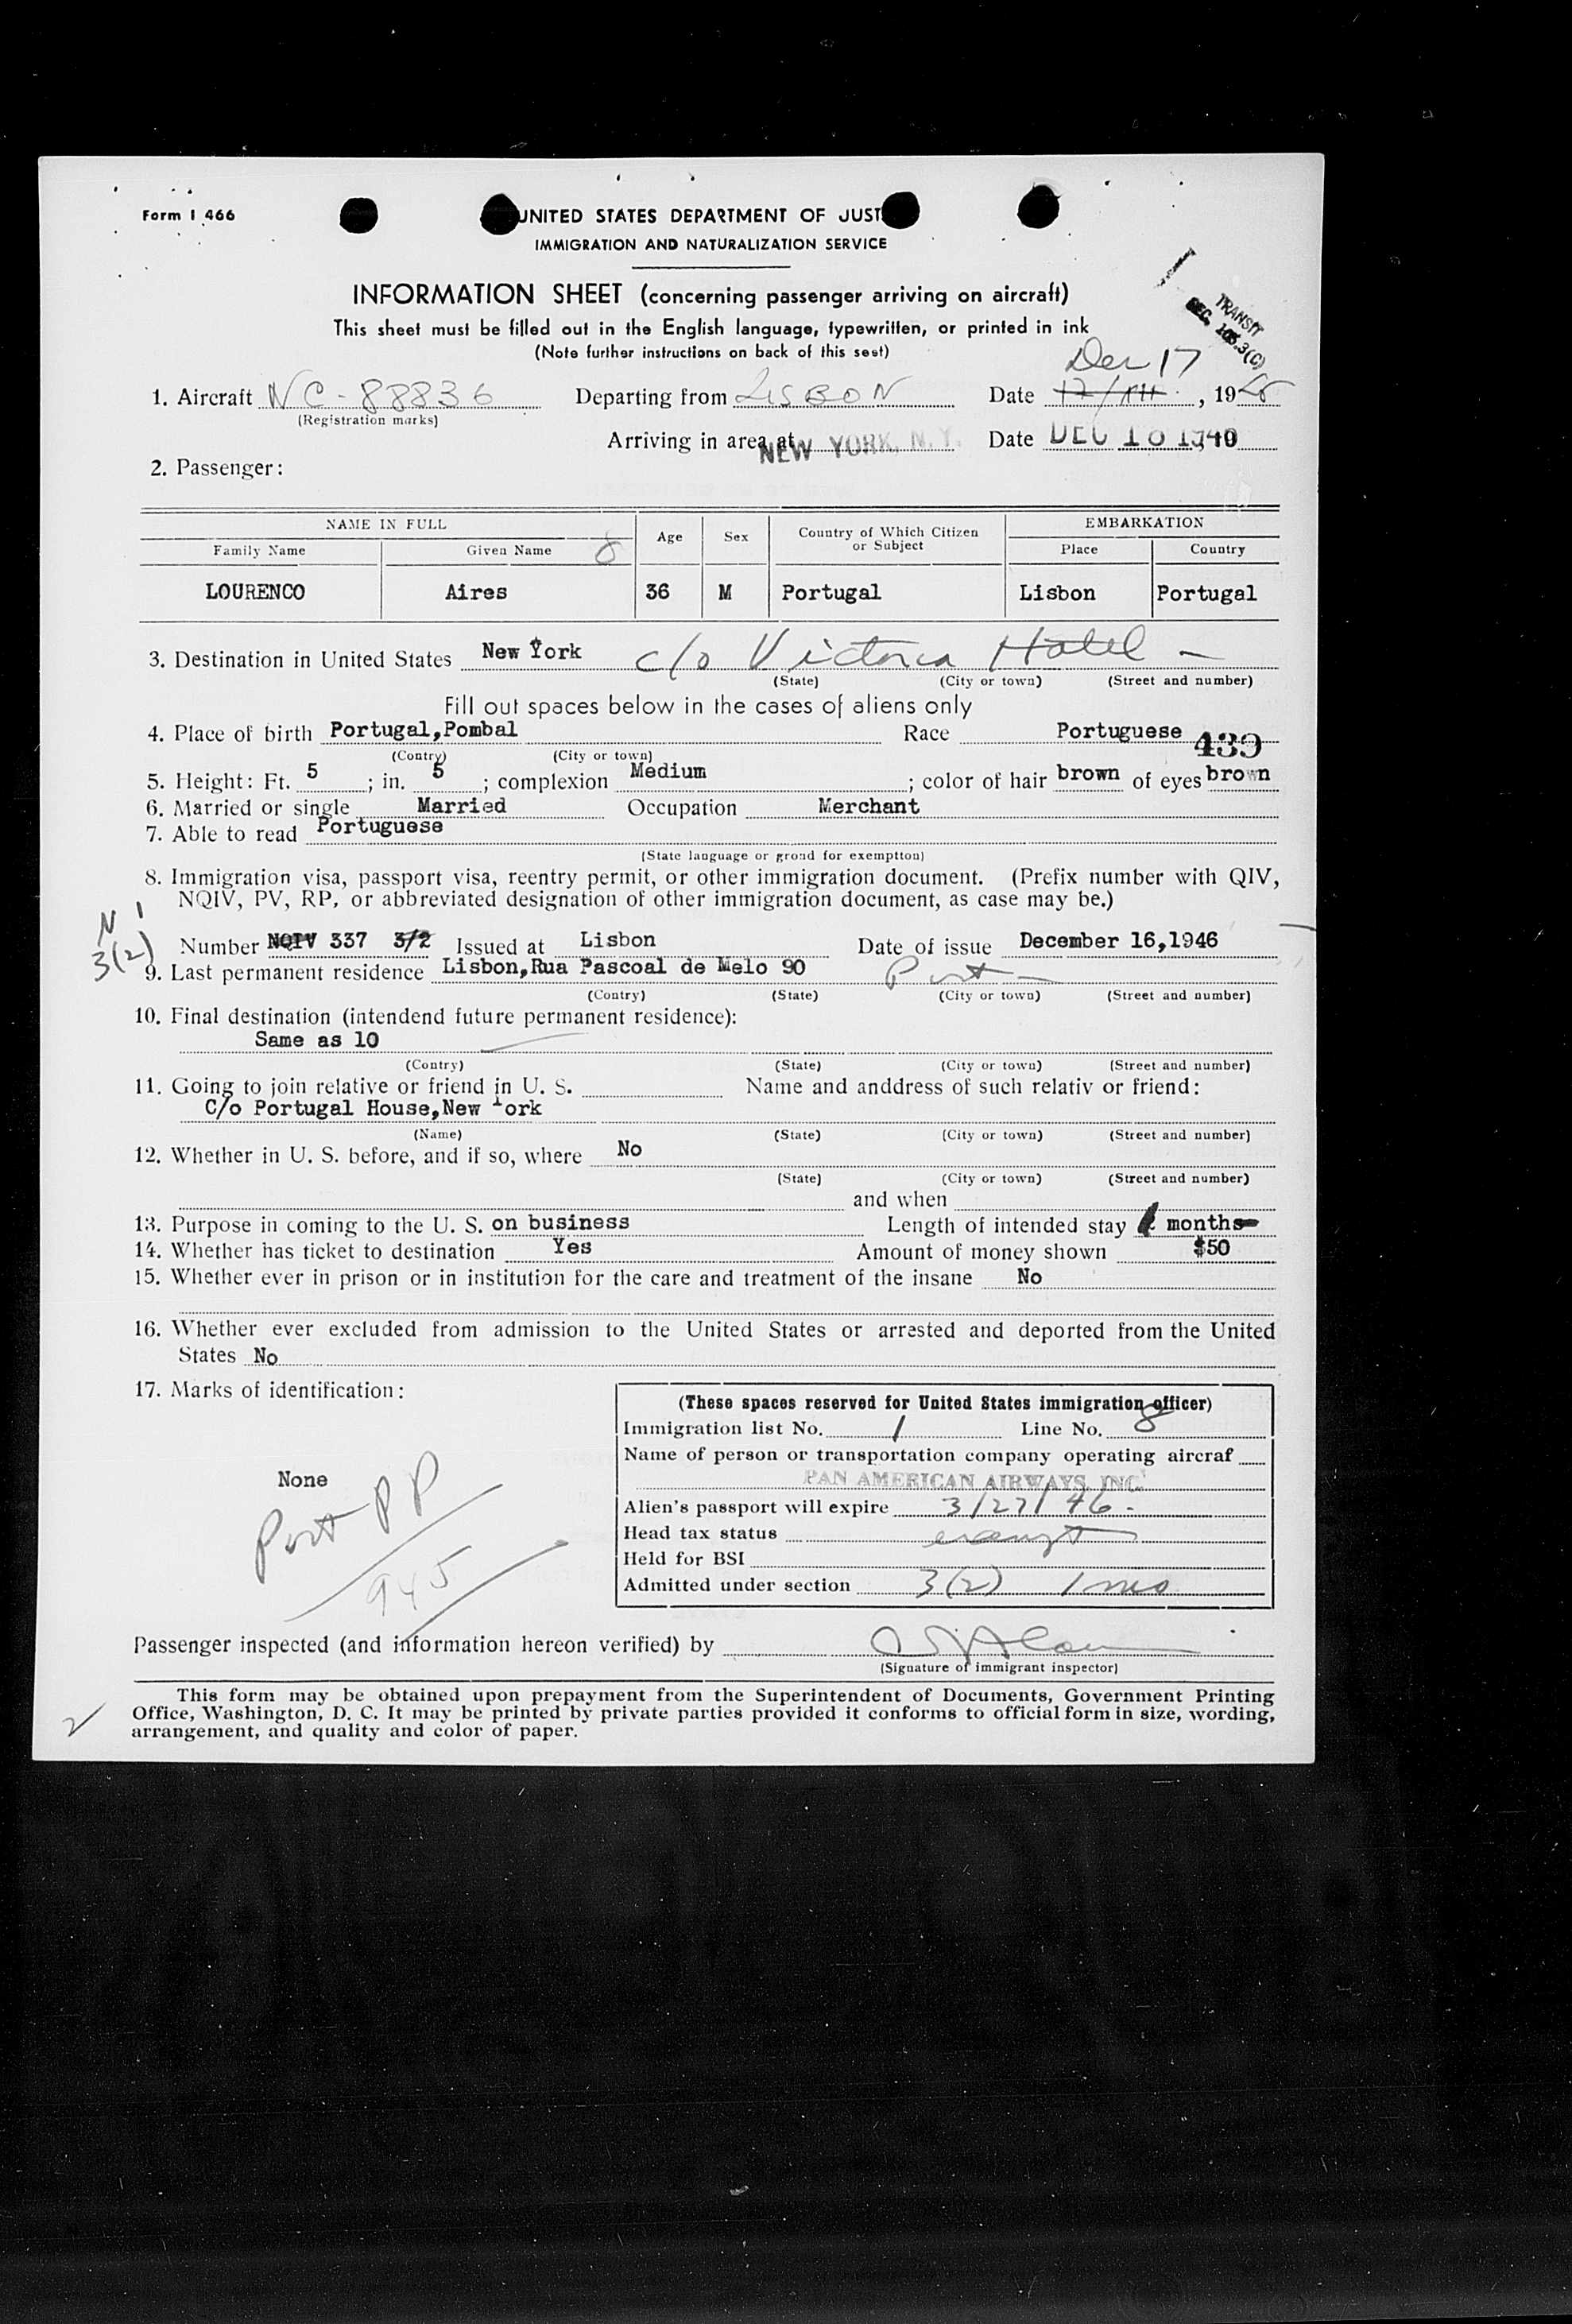 Form I 466
UNITED STATES DEPARTMENT OF JUST
IMMIGRATION AND NATURALIZATION SERVICE
INFORMATION SHEET (concerning passenger arriving on aircraft)
This sheet must be filled out in the English language, typewritten, or printed in ink
(Note further instructions on back of this seet)
TRANSIT
Dec 17
1. Aircraft NC-88836 Departing from LISBON Date , 19
(Registration marks)
Arriving in area at NEW YORK, N.Y. Date DEC 18
2. Passenger:
NAME IN FULL Age Sex Country of Which Citizen or Subject EMBARKATION
Family Name Given Name 8 Place Country
LOURENCO Aires 36 M Portugal Lisbon Portugal
3. Destination in United States New York c/o Victoria Hotel -
(State) (City or town) (Street and number)
Fill out spaces below in the cases of aliens only
4. Place of birth Portugal,Pombal Race Portuguese 439
(Contry) (City or town)
5. Height: Ft. 5 ; in. 5 ; complexion Medium ; color of hair brown of eyes brown
6. Married or single Married Occupation Merchant
7. Able to read Portuguese
(State language or groud for exemption)
8. Immigration visa, passport visa, reentry permit, or other immigration document. (Prefix number with QIV,
NQIV, PV, RP, or abbreviated designation of other immigration document, as case may be.)
3(2)
Number NQIV 337 3/2 Issued at Lisbon Date of issue December 16,1946
9. Last permanent residence Lisbon,Rua Pascoal de Melo 90 Port -
(Contry) (State) (City or town) (Street and number)
10. Final destination (intendend future permanent residence):
Same as 10
(Contry) (State) (City or town) (Street and number)
11. Going to join relative or friend in U. S. Name and anddress of such relativ or friend:
C/o Portugal House,New York
(Name) (State) (City or town) (Street and number)
12. Whether in U. S. before, and if so, where No
(State) (City or town) (Street and number)
and when
13. Purpose in coming to the U. S. on business Length of intended stay months
14. Whether has ticket to destination Yes Amount of money shown $50
15. Whether ever in prison or in institution for the care and treatment of the insane No
16. Whether ever excluded from admission to the United States or arrested and deported from the United
States No
17. Marks of identification:
None
Port PP
945
(These spaces reserved for United States immigration officer)
Immigration list No. 1 Line No. 8
Name of person or transportation company operating aircraf
PAN AMERICAN AIRWAYS, INC.
Alien's passport will expire 3/27/46.
Head tax status exempt
Held for BSI
Admitted under section 3(2) 1 mo
Passenger inspected (and information hereon verified) by
(Signature of immigrant inspector)
This form may be obtained upon prepayment from the Superintendent of Documents, Government Printing
Office, Washington, D. C. It may be printed by private parties provided it conforms to official form in size, wording,
arrangement, and quality and color of paper.